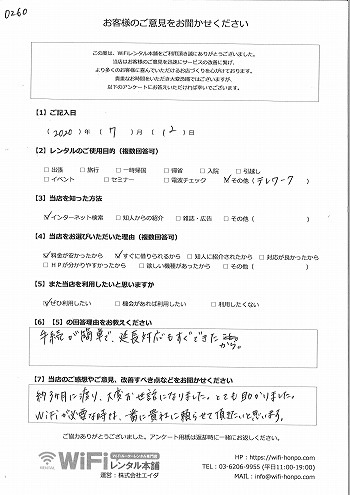 0260
お客様のご意見をお聞かせください
この度は、WiFiレンタル本舗をご利用頂き誠にありがとうございました。
当店はお客様のご意見を迅速にサービスの改善に繋げ、
より多くのお客様に喜んでいただけるお店づくりを心がけております。
貴重なお時間をいただき大変恐縮ではございますが、
以下のアンケートにお答えいただければ幸いでございます。
【1】ご記入日
( 2020 ) 年 ( 7 ) 月 ( 12 ) 日
【2】レンタルのご使用目的（複数回答可）
□ 出張 □ 旅行 □ 一時帰国 □ 帰省 □ 入院 □ 引越し
□ イベント □ セミナー □ 電波チェック ☑ その他 ( テレワーク )
【3】当店を知った方法
☑ インターネット検索 □ 知人からの紹介 □ 雑誌・広告 □ その他 ( )
【4】当店をお選びいただいた理由（複数回答可）
☑ 料金が安かったから ☑ すぐに借りられるから □ 知人に紹介されたから □ 対応が良かったから
□ ＨＰが分かりやすかったから □ 欲しい機種があったから □ その他 ( )
【5】また当店を利用したいと思いますか
☑ ぜひ利用したい □ 機会があれば利用したい □ 利用したくない
【6】【5】の回答理由をお教えください
手続が簡単で、延長対応もすぐできた
から。
【7】当店のご感想やご意見、改善すべき点などをお聞かせください
約3ヶ月に渡り、大変お世話になりました。とても助かりました。
WiFiが必要な時は、一番に貴社に頼らせて頂きたいと思います。
ご協力ありがとうございました。アンケート用紙は返却時に一緒にお返しください。
WiFiルーターレンタル専門店
WiFi
レンタル本舗
RENTAL
運営：株式会社エイダ
HP：https://wifi-honpo.com
TEL：03-6206-9955 (平日11:00-19:00)
MAIL：info@wifi-honpo.com